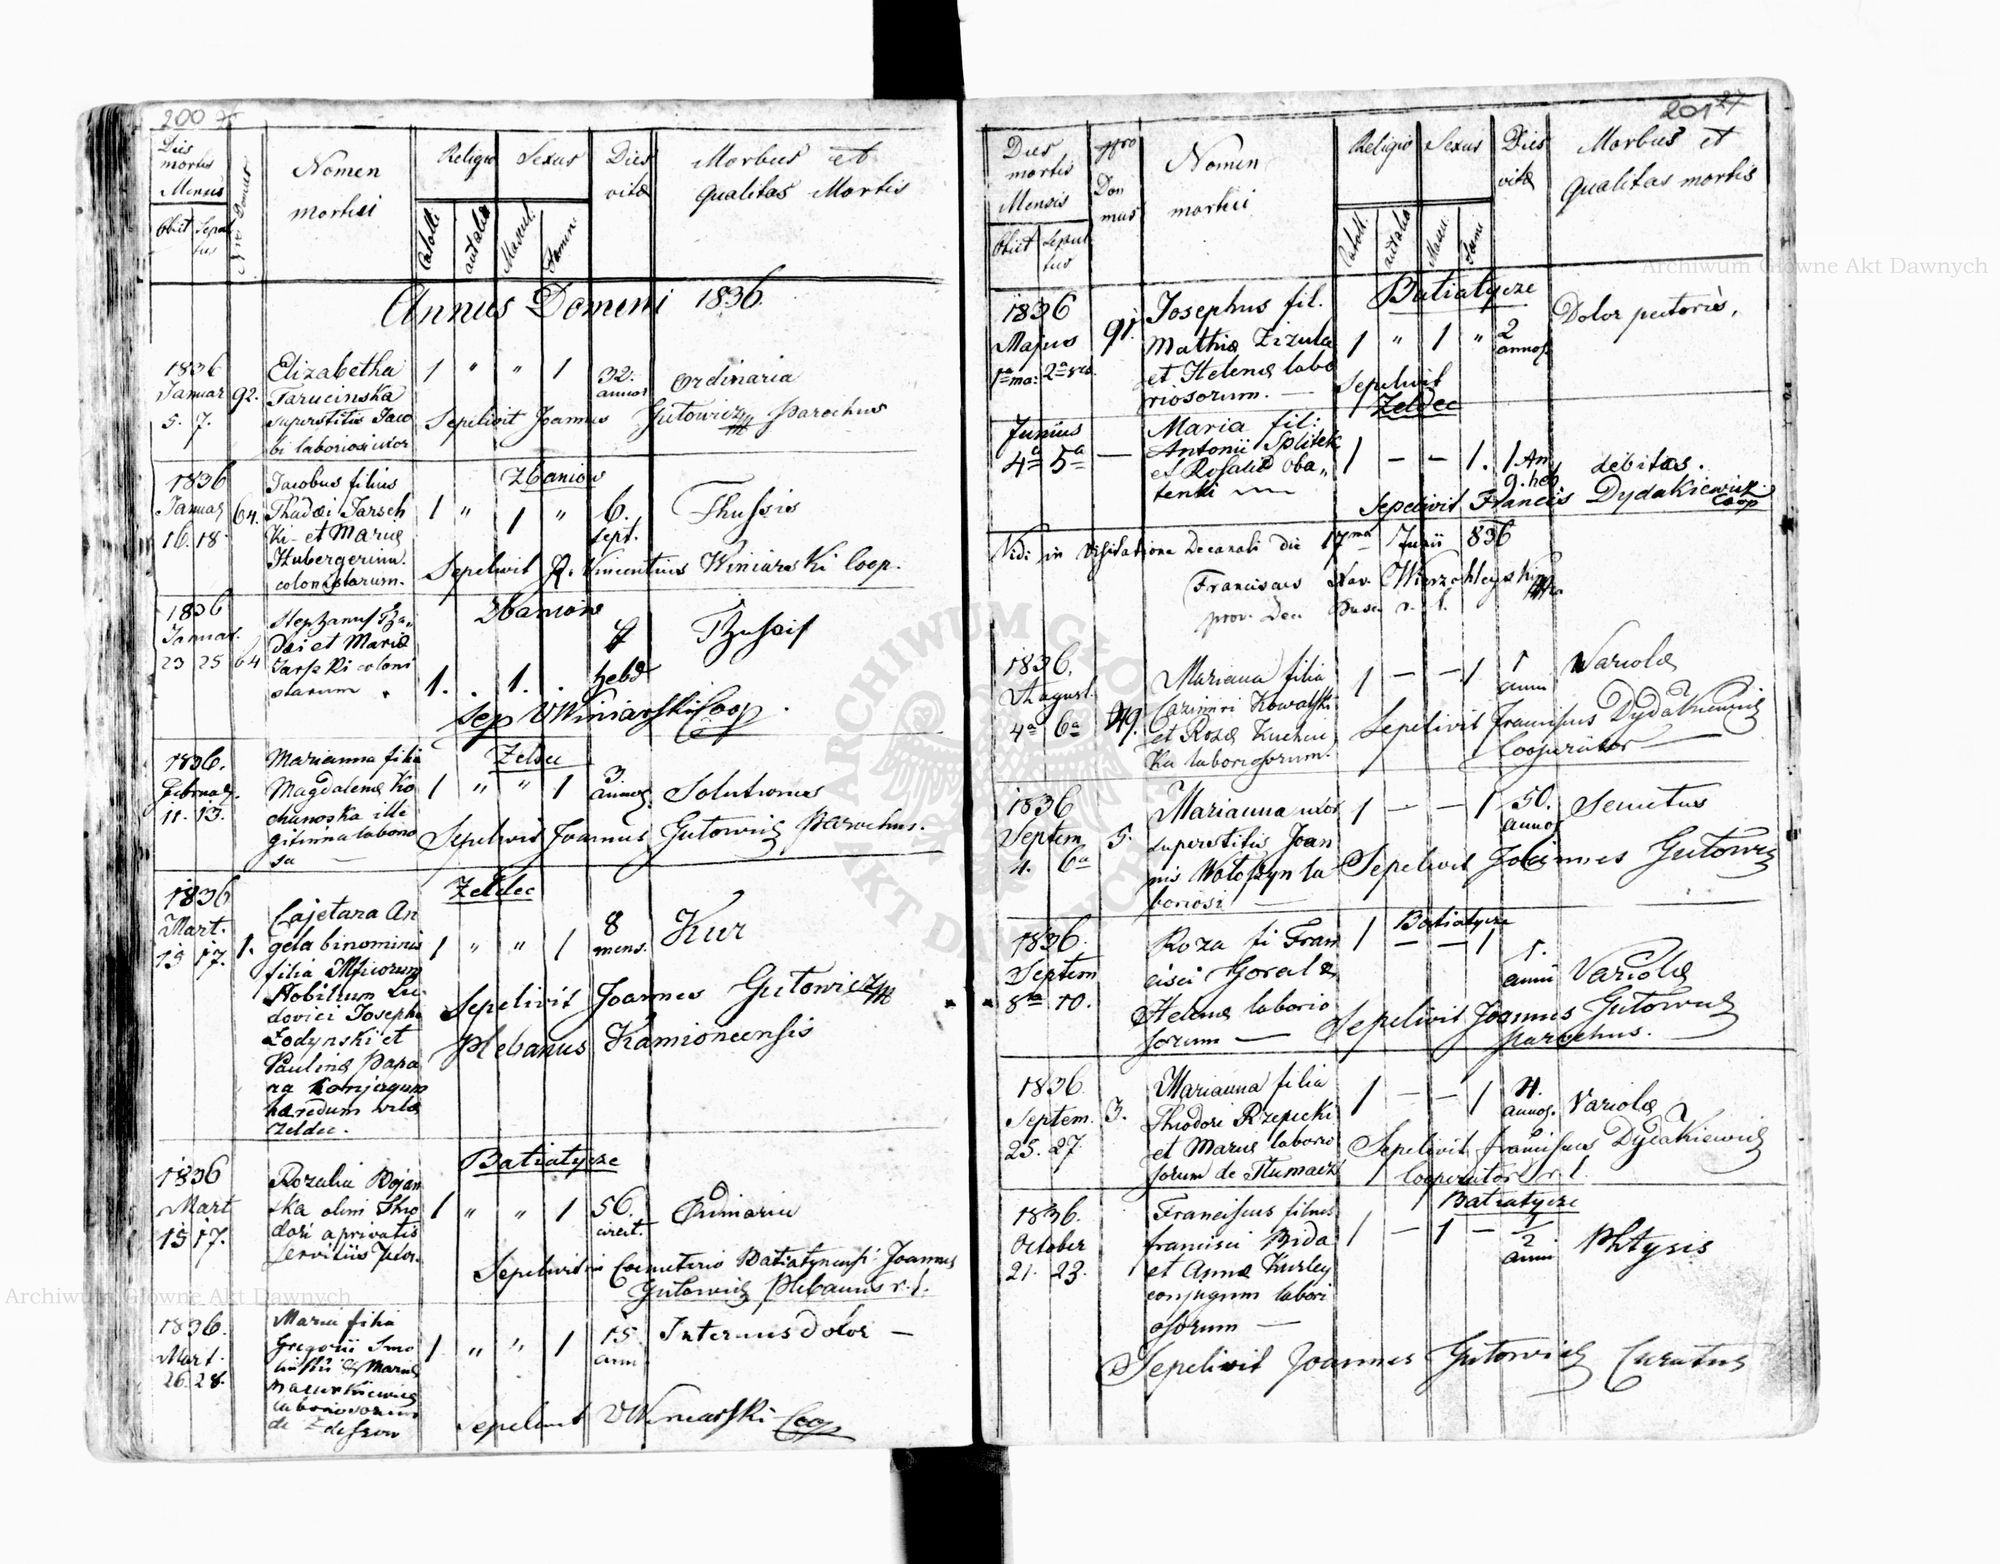 200
Dies mortis Mensis
Obiit Sepultus
Nro Domus
Nomen mortui
Religio
Catoll: aut alia
Sexus
Mascul. Femini
Dies vitæ
Morbus et qualitas Mortis
Annus Domini 1836.
1836 Januar 5. 7. 92.
Elizabetha
Tarucinska
superstitis Jaco
bi laboriosi uxor
1 " " 1 32. annos ordinaria
Sepelivit Joannes Gutowicz Parochus
1836 Januar 16. 18. 64.
Zbaniow
Jacobus filius
Thadæi Jarsch
ki et Mariæ
Hubergerium
colonistarum.
1 " 1 " 6. sept. Thussis
Sepelivit R. Vincentius Winiarski Coop.
1836 Januar. 23 25 64
Zbaniow
Stephanus Tha
dæi et Mariæ
Jarski coloni
starum
1. . 1. . hebd Thussis
Sep VWiniarski Coop.
1836. Februar. 11. 13.
Zeldec
Marianna filia
Magdalenæ Ko
chanoska ille
gitima laborio
sa
1 " " 1 3. annos. Solutionis
Sepelivit Joannes Gutowicz Parochus.
1836 Mart. 15 17. 1.
Zeldec
Cajetana An
gela binominis
filia Mficorum
Nobilium Lu
dovici Josephi
Zodynski et
Paulinæ Papa
ra Conjugum
hæredum villæ
Zeldec.
1 " " 1 8 mens. Kur
Sepelivit Joannes Gutowicz
Plebanus Kamioneensis
1836 Mart 15 17.
Batiatycze
Rozalia Bojan
ska olim Theo
dori a privatis
servitiis
1 " " 1 56. circit. Ordinaria
Sepelivit in Coemeterio Batiatynensi Joannes
Gutowicz Plebanus r. l.
1836. Mart. 26. 28.
Maria filia
Gregorii Smo
linski et Mariæ
Mazurkiewicz
laboriosorum
de
1 " " 1 15 ann. Internus dolor
Sepelivit VWiniarski Coop
201
Dies mortis Mensis
Obiit Sepultus
Nro Domus
Nomen mortui
Religio
Catoll. aut alia
Sexus
Mascu. Femi
Dies vitæ
Morbus et qualitas mortis
1836 Majus 1ma: 2da 91.
Batiatycze
Josephus fil.
Mathiæ Zizula
et Helenæ labo
riosorum.
1 " 1 " 2 annos. Dolor pectoris,
Sepelivit
Junius 4a 5a —
Zeldec
Maria fil:
Antonii Splitek
et Rosaliæ Oba
tenki
1 — — 1. 1 An 9. heb debitas.
Sepelivit Francis Dydakiewicz Coop
Vidi in Visitatione Decanali die 17ma Junii 836
Franciscus Xav. Wierzchleyski
prov. Dec Busc. r. l.
1836. August. 4a 6a 49.
Mariana filia
Cazimiri Kowalski
et Rosæ Kuchci
ka laboriosorum.
1 — — 1 1 anni Variolæ
Sepelivit Franciscus Dydakiewicz
Cooperator
1836 Septem 4. 6a 5.
Marianna uxor
superstitis Joan
nis Wołoszyn la
boriosi
1 — — 1 50. annos Senectus
Sepelivit Joannes Gutowicz
1836. Septem 8va 10.
Batiatycze
Roza fi Fran
cisci Goral &
Helenæ laborio
sorum
1 — — 1 1. anni Variolæ
Sepelivit Joannes Gutowicz
Parochus.
1836. Septem. 25. 27. 3.
Marianna filia
Theodori Rzepecki
et Mariæ laborio
sorum de Tłumacz
1 — — 1 4. annos. Variolæ
Sepelivit Franciscus Dydakiewicz
Cooperator r. l.
1836. October 21. 23.
Batiatycze
Franciscus filius
Francisci Bida
et Annæ Kurley
conjugum labori
osorum
1 — 1 — 1/2 anni Phtysis
Sepelivit Joannes Gutowicz Curatus
Archiwum Główne Akt Dawnych
Archiwum Główne Akt Dawnych
ARCHIWUM GŁÓWNE AKT DAWNYCH